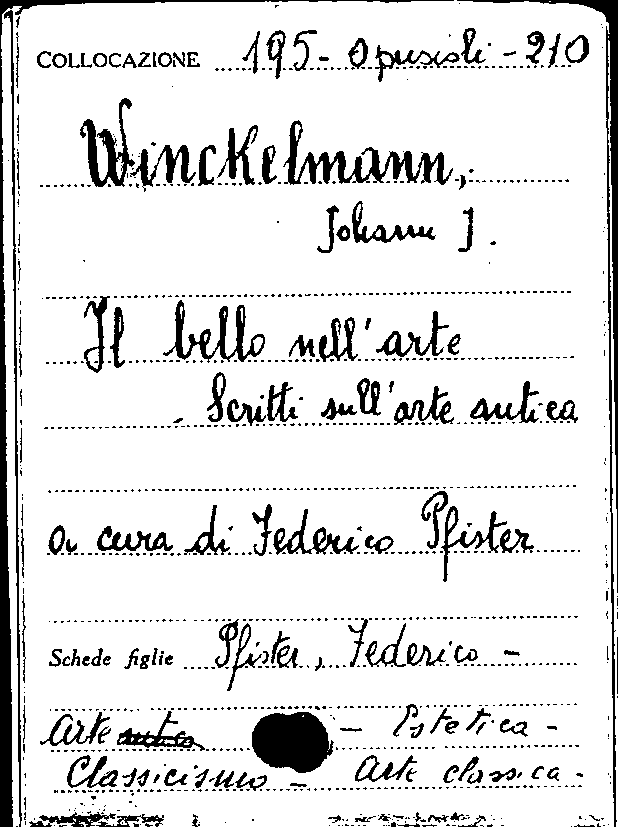 COLLOCAZIONE 195 - Opuscoli - 210
Winckelmann,
Johann J.
Il bello nell'arte
- Scritti sull'arte antica
a cura di Federico Pfister
Schede figlie Pfister, Federico -
Arte antica - Estetica -
Classicismo - Arte classica -